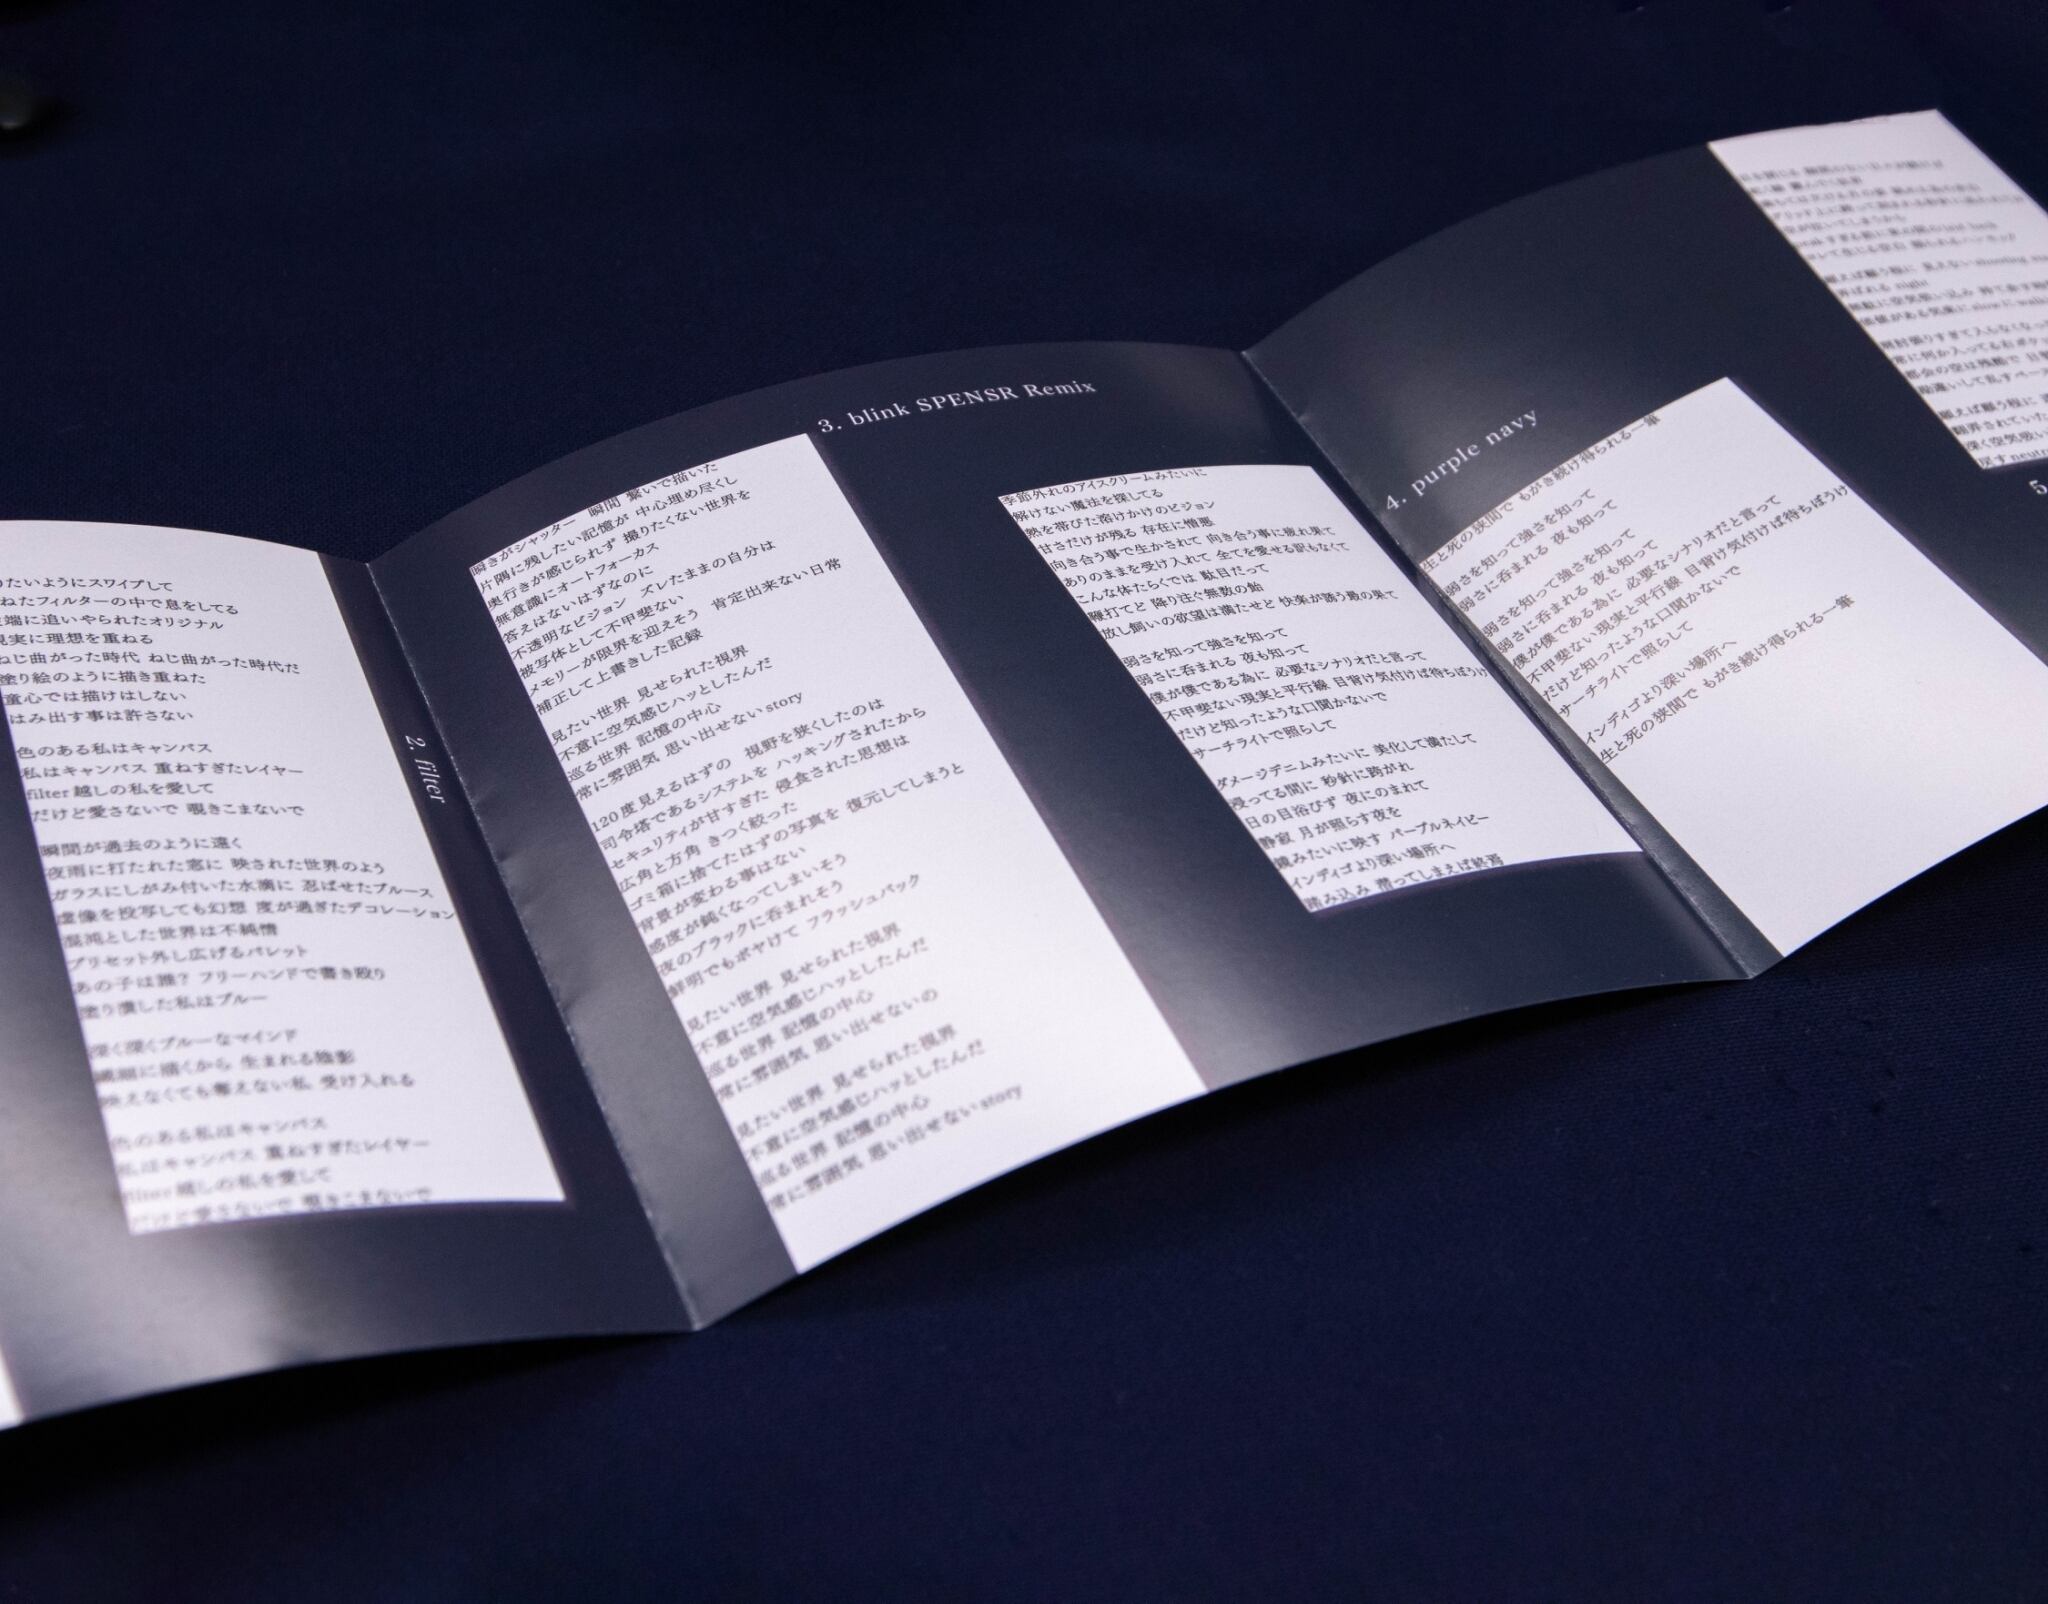 りたいようにスワイプして
ねたフィルターの中で息をしてる
端に追いやられたオリジナル
現実に理想を重ねる
ねじ曲がった時代 ねじ曲がった時代だ
塗り絵のように描き重ねた
童心では描けはしない
はみ出す事は許さない
色のある私はキャンパス
私はキャンパス 重ねすぎたレイヤー
filter 越しの私を愛して
だけど愛さないで 覗きこまないで
瞬間が過去のように遠く
夜雨に打たれた窓に 映された世界のよう
ガラスにしがみ付いた水滴に 忍ばせたブルース
虚像を投写しても幻想 度が過ぎたデコレーション
混沌とした世界は不純情
プリセット外し広げるパレット
あの子は誰? フリーハンドで書き殴り
塗り潰した私はブルー
深く深くブルーなマインド
繊細に描くから 生まれる陰影
映えなくても奪えない私 受け入れる
色のある私はキャンパス
私はキャンパス 重ねすぎたレイヤー
filter 越しの私を愛して
だけど愛さないで 覗きこまないで
2. filter
瞬きがシャッター 瞬間 繋いで描いた
片隅に残したい記憶が 中心埋め尽くし
奥行きが感じられず 撮りたくない世界を
無意識にオートフォーカス
答えはないはずなのに
不透明なビジョン ズレたままの自分は
被写体として不甲斐ない
メモリーが限界を迎えそう 肯定出来ない日常
補正して上書きした記録
見たい世界 見せられた視界
不意に空気感じハッとしたんだ
巡る世界 記憶の中心
常に雰囲気 思い出せない story
120度見えるはずの 視野を狭くしたのは
司令塔であるシステムを ハッキングされたから
セキュリティが甘すぎた 侵食された思想は
広角と方角 きつく絞った
ゴミ箱に捨てたはずの写真を 復元してしまうと
背景が変わる事はない
感度が鈍くなってしまいそう
夜のブラックに呑まれそう
鮮明でもボヤけて フラッシュバック
見たい世界 見せられた視界
不意に空気感じハッとしたんだ
巡る世界 記憶の中心
常に雰囲気 思い出せないの
見たい世界 見せられた視界
不意に空気感じハッとしたんだ
巡る世界 記憶の中心
常に雰囲気 思い出せない story
3. blink SPENSR Remix
季節外れのアイスクリームみたいに
解けない魔法を探してる
熱を帯びた溶けかけのビジョン
甘さだけが残る 存在に憎悪
向き合う事で生かされて 向き合う事に疲れ果て
ありのままを受け入れて 全てを愛せる訳もなくて
こんな体たらくでは 駄目だって
鞭打てど 降り注ぐ無数の飴
放し飼いの欲望は満たせど 快楽が誘う最の果て
弱さを知って強さを知って
弱さに呑まれる 夜も知って
僕が僕である為に 必要なシナリオだと言って
不甲斐ない現実と平行線 目背け気付けば待ちぼうけ
だけど知ったような口聞かないで
サーチライトで照らして
ダメージデニムみたいに 美化して満たして
浸ってる間に 秒針に跨がれ
日の目浴びず 夜にのまれて
静寂 月が照らす夜を
鏡みたいに映す パープルネイビー
インディゴより深い場所へ
踏み込み 潜ってしまえば終焉
4. purple navy
生と死の狭間で もがき続け得られる一筆
弱さを知って強さを知って
弱さに呑まれる 夜も知って
弱さを知って強さを知って
弱さに呑まれる 夜も知って
僕が僕である為に 必要なシナリオだと言って
不甲斐ない現実と平行線 目背け気付けば待ちぼうけ
だけど知ったような口聞かないで
サーチライトで照らして
インディゴより深い場所へ
生と死の狭間で もがき続け得られる一筆
願えば願う程に 見えない shooting
呼ばれる night
頬張りすぎて入らなくなっ
常に何か入ってる右ポケ
都会の空は残酷で
段違いして乱すペー
願えば願う程に
翻弄されていた
深く空気吸い
戻す neutr
5.